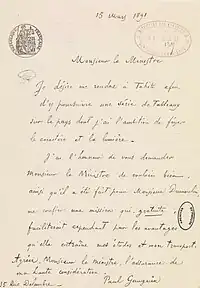 15 Mars 1891
Monsieur le Ministre
Je désire me rendre à Tahiti afin
d'y poursuivre une série de tableaux
sur le pays dont j'ai l'ambition de fixer
le caractère et la lumière.
J'ai l'honneur de vous demander
Monsieur le Ministre de vouloir bien,
ainsi qu'il a été fait pour Monsieur Dumoulin,
me confier une mission qui, gratuite
faciliterait cependant par les avantages
qu'elle entraine mes études et mon transport.
Agréez, Monsieur le ministre, l'assurance de
ma haute considération
Paul Gauguin
15 Rue Delambre.